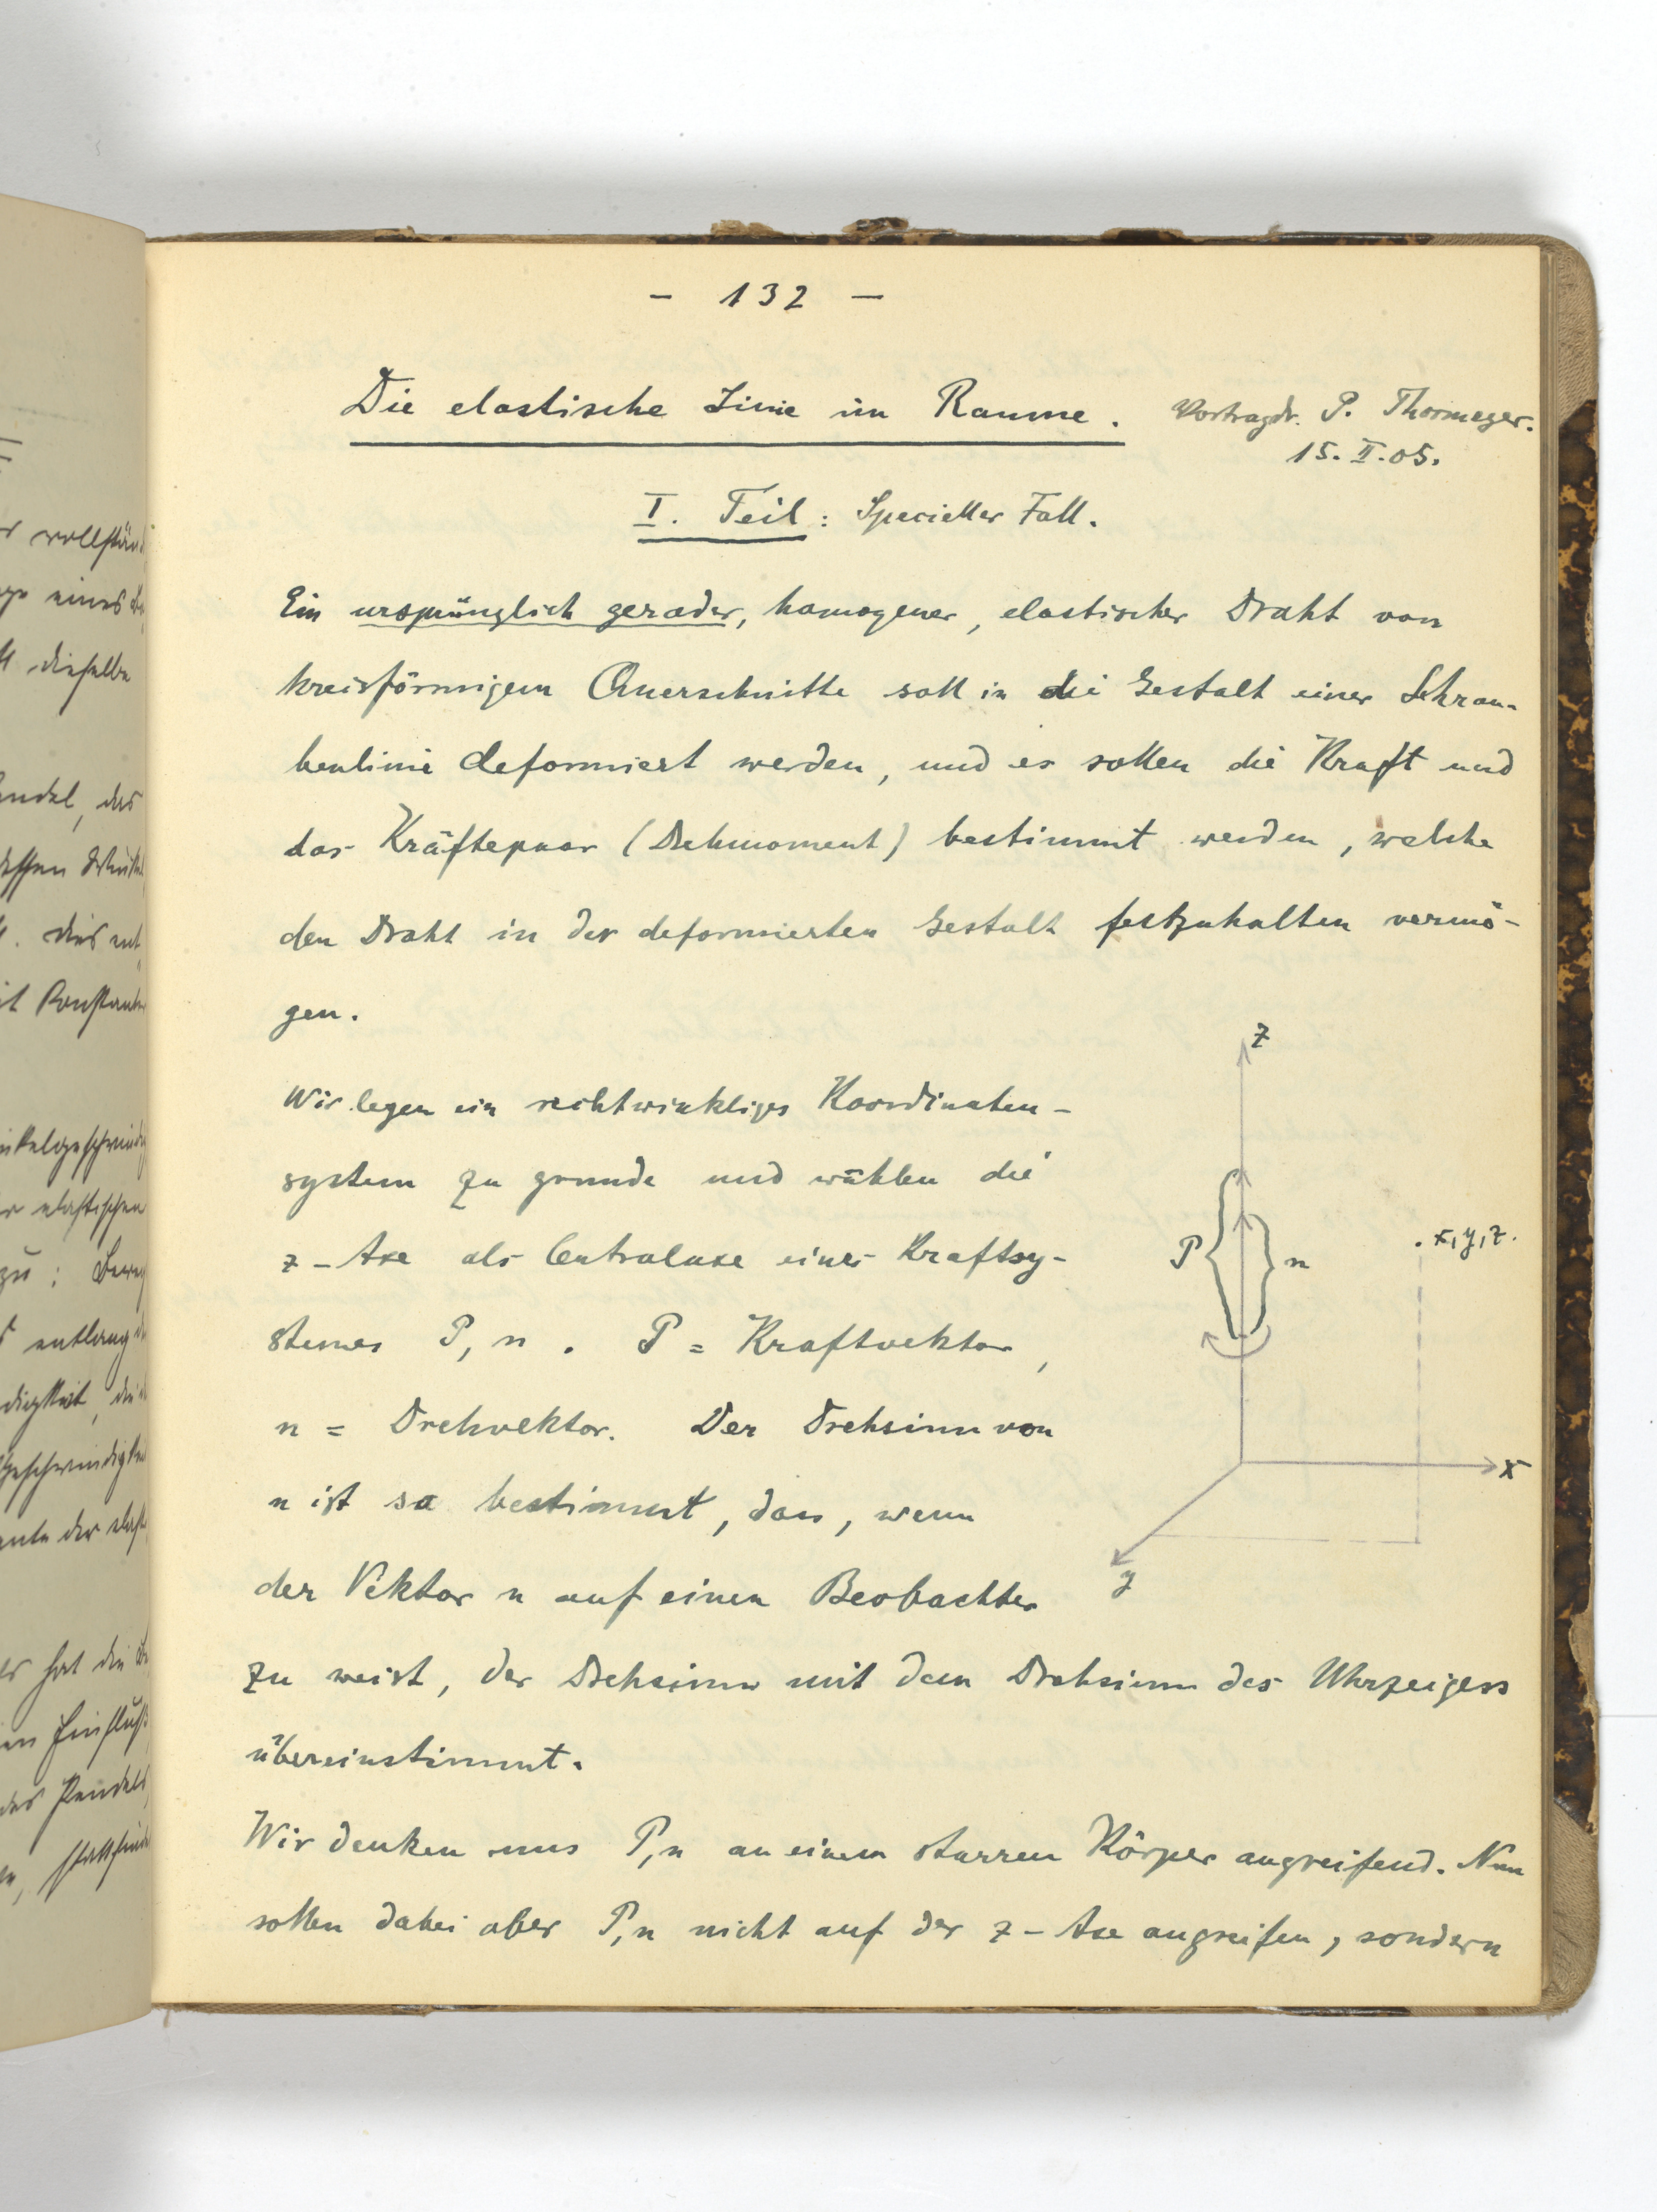 - 132 -
Die elastische Linie im Raume.
Vortragdr. P. Thormeyer.
15. II. 05.
I. Teil: Specieller Fall.
Ein ursprünglich gerader, homogener, elastischer Draht von
kreisförmigem Querschnitte soll in die Gestalt einer Schrau-
benlinie deformiert werden, und es sollen die Kraft und
das Kräftepaar (Drehmoment) bestimmt werden, welche
den Draht in der deformierten Gestalt festzuhalten vermö-
gen.
Wir legen ein rechtwinkliges Koordinaten-
system zu grunde und wählen die
z-Axe als Centralaxe eines Kraftsy-
stemes P, n. P = Kraftvektor,
n = Drehvektor. Der Drehsinn von
n ist so bestimmt, dass, wenn
der Vektor n auf einen Beobachter
zu weist, der Drehsinn mit dem Drehsinn des Uhrzeigers
übereinstimmt.
z
P
n
x, y, z.
x
y
Wir denken uns P, n an einem starren Körper angreifend. Nun
sollen dabei aber P, n nicht auf der z-Axe angreifen, sondern
vollständ
eines
dieselbe
das
dessen
dies
Konstanten
elastischen
zu:
entlang
der
hat die
Einfluß
des Pendels